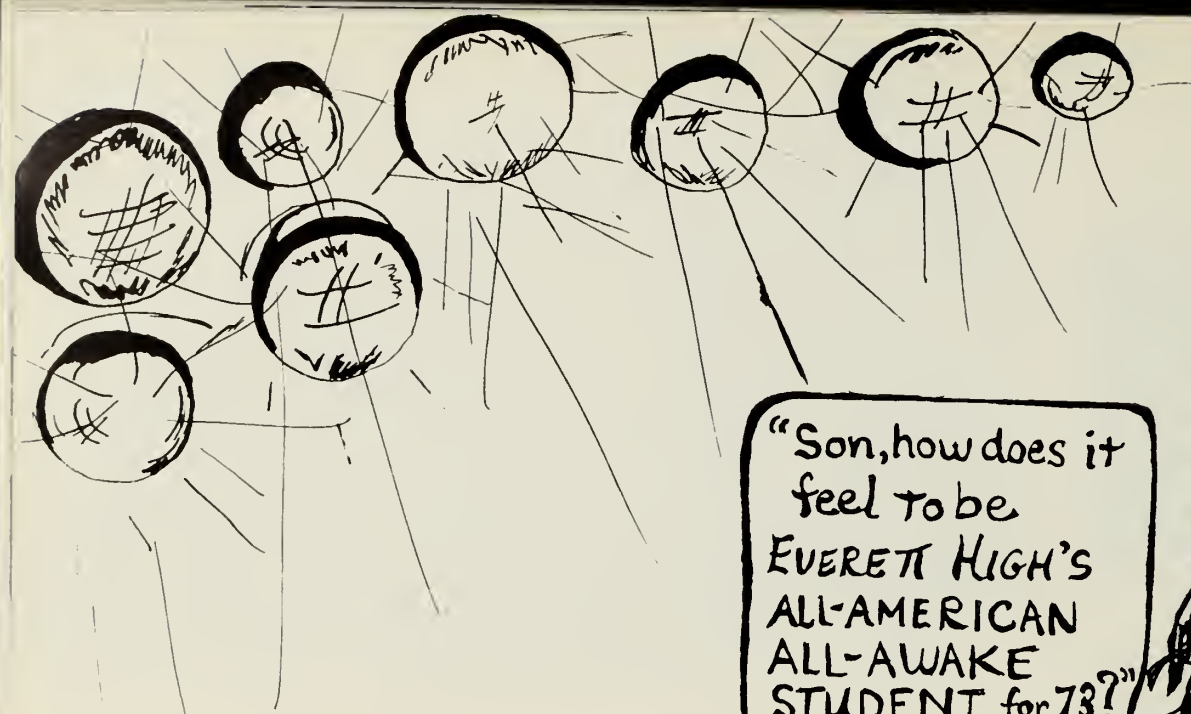 "Son, how does it
feel to be
EVERETT HIGH'S
ALL-AMERICAN
ALL-AWAKE
STUDENT for 73?"